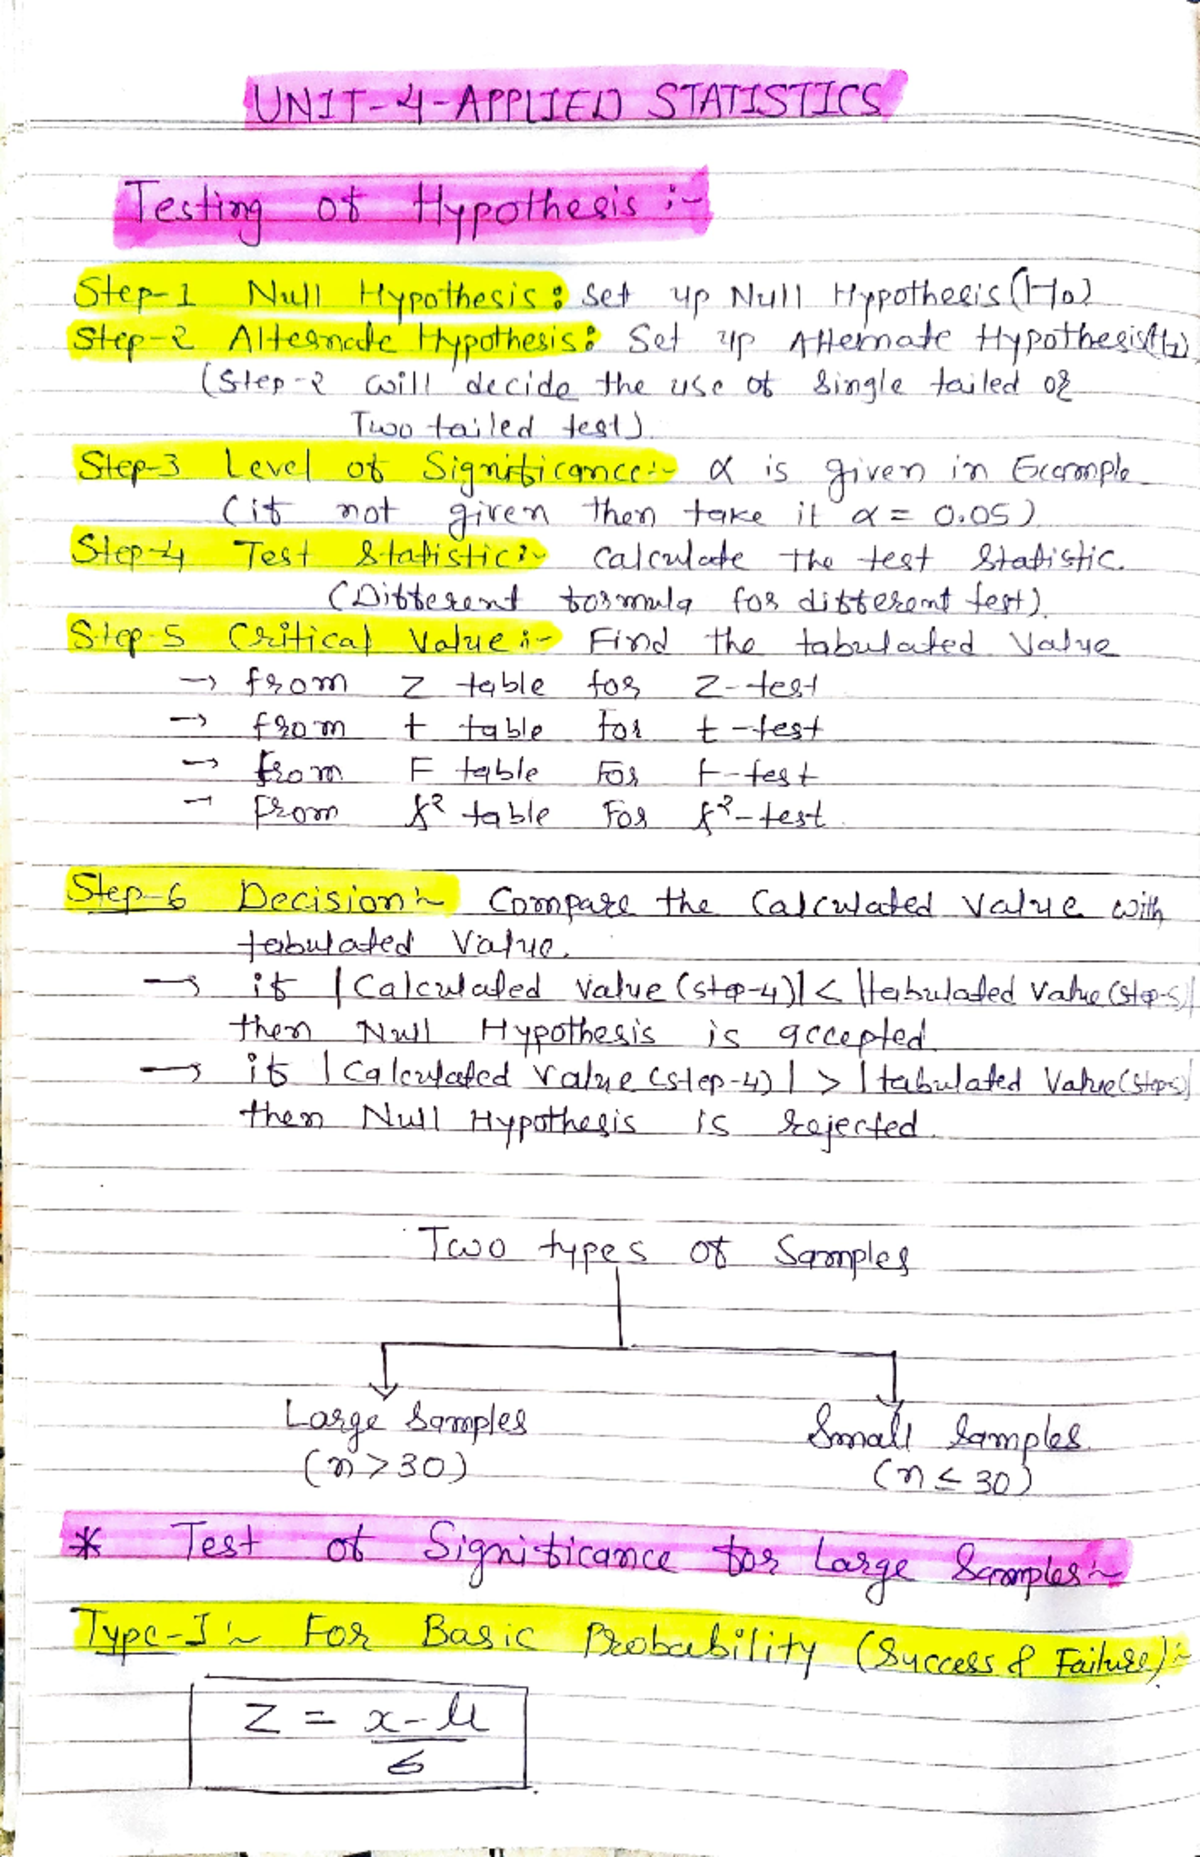 UNIT-4-APPLIED STATISTICS
Testing of Hypothesis :-
Step-1 Null Hypothesis : Set up Null Hypothesis (H0)
Step-2 Alternate Hypothesis : Set up Alternate Hypothesis (H1)
(Step-2 will decide the use of Single tailed or
Two tailed test)
Step-3 Level of Significance :- α is given in Example
(if not given then take it α = 0.05)
Step-4 Test Statistic :- Calculate the test Statistic.
(Different formula for different test).
Step-5 Critical Value :- Find the tabulated Value
→ from Z table for Z-test
→ from t table for t-test
→ from F table For F-test
→ From χ² table For χ²-test.
Step-6 Decision :- Compare the Calculated Value with
tabulated Value.
→ if |Calculated Value (step-4)| < |tabulated Value (step-5)|
then Null Hypothesis is accepted.
→ if |Calculated Value (step-4)| > |tabulated Value (step5)|
then Null Hypothesis is rejected.
Two types of Samples
Large Samples Small Samples
(n > 30) (n ≤ 30)
* Test of Significance for Large Samples :-
Type-I :- For Basic Probability (Success & Failure) :-
Z = x - μ
σ